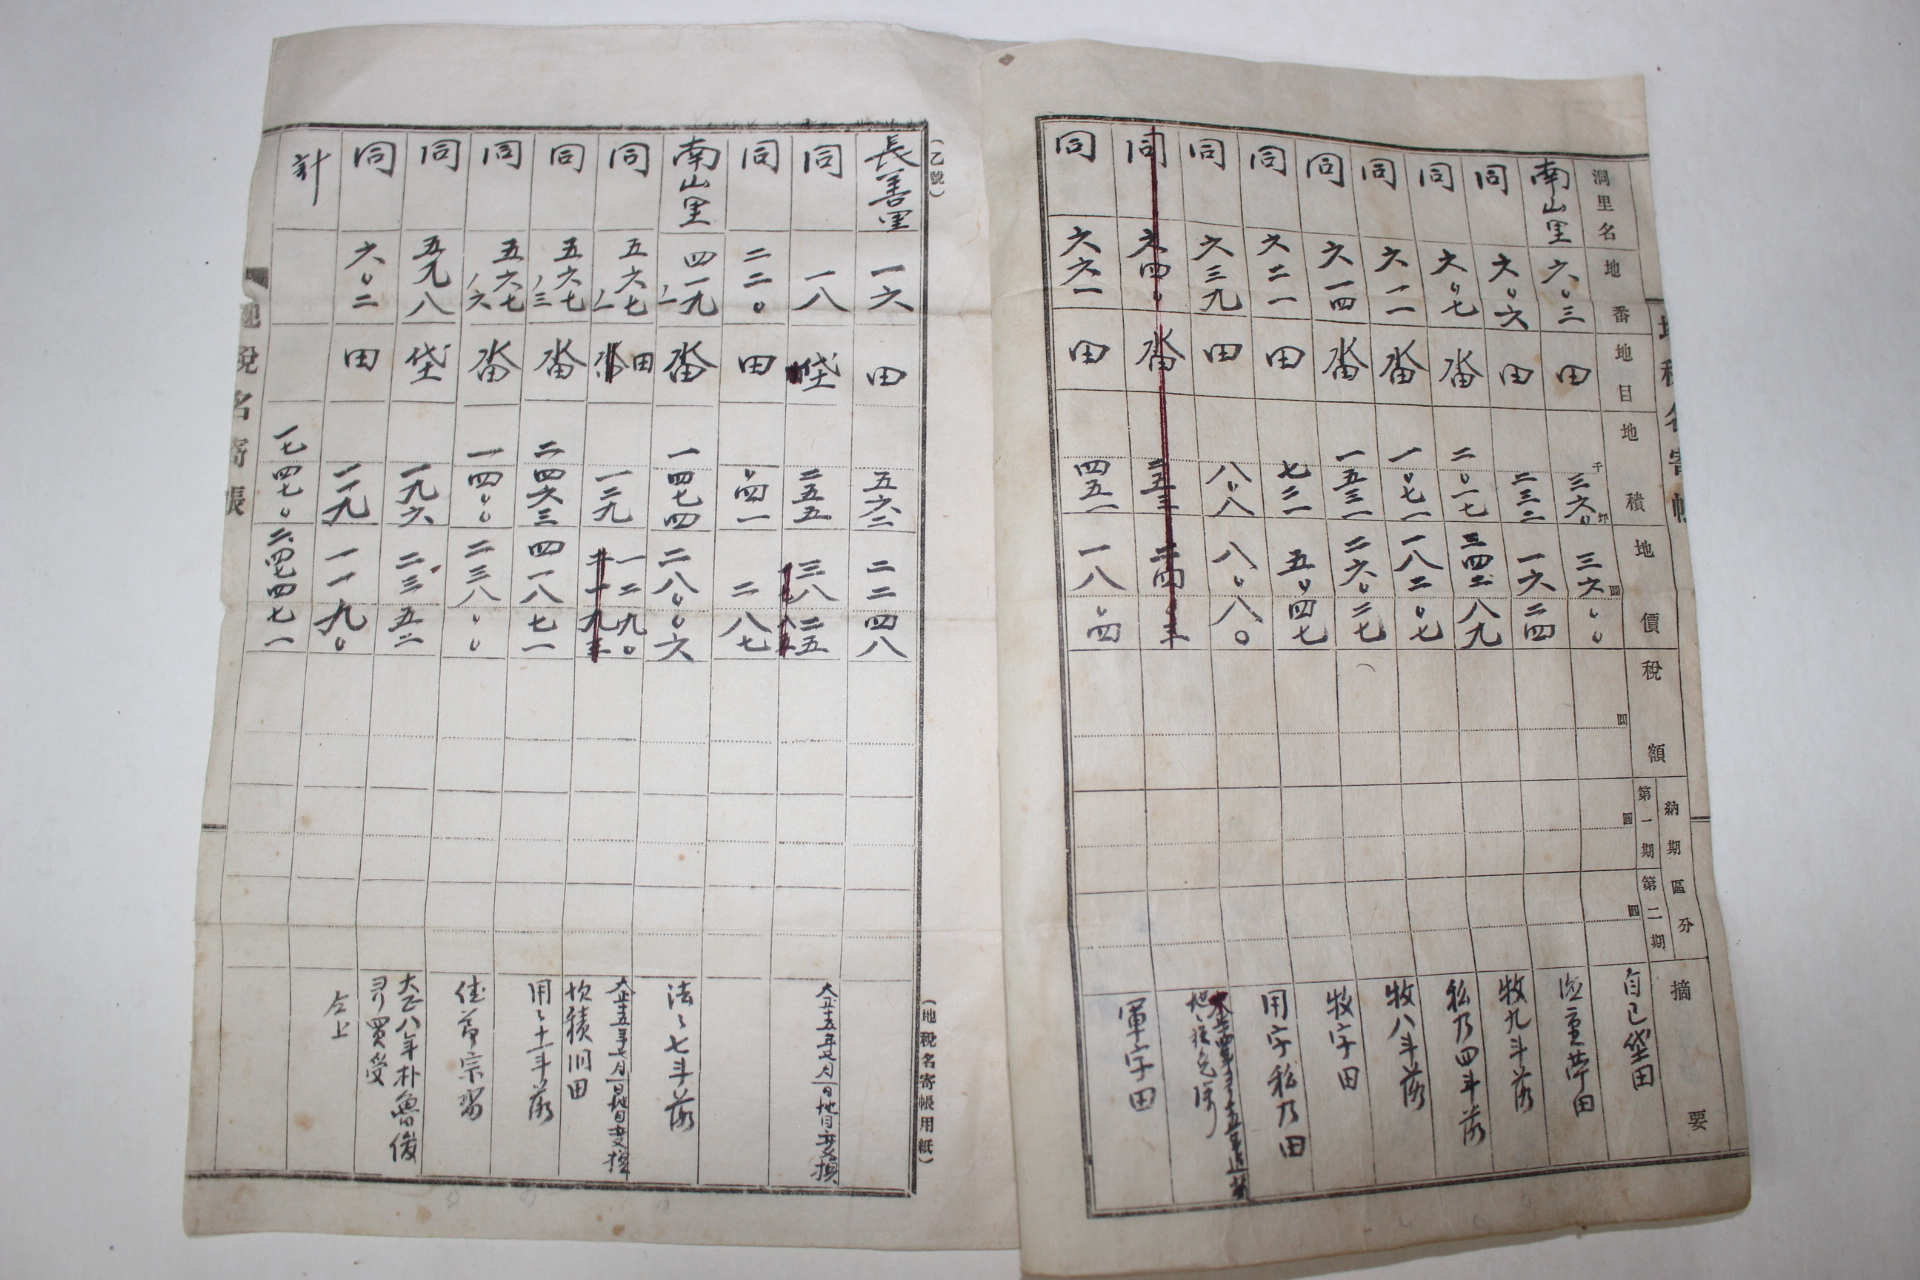 洞里名 地番 地目 地積 地價 稅額 納期區分 第一期 第二期 摘要
南山里 六〇三 田 三六〇 三六〇〇 自己垈田
同 六〇六 田 二三二 一六二四
同 六〇七 畓 二〇一七 三四二八九 牧九斗落
同 六一一 畓 一〇七一 一八二〇七 私乃四斗落
同 六一四 畓 一五三一 二六〇二七 牧八斗落
同 六二一 田 七二一 五〇四七 牧字田
同 六三九 田 八〇八 八〇八〇 用字私乃田
同 六四〇 畓
同 六六一 田 四五一 一八〇四 軍字田
(乙號)
長善里 一六 田 五六二 二二四八
同 一八 垈 二五五 三八二五 大正十五年七月一日地目變換
同 二二〇 田 〇四一 二八七
南山里 四一九ノ一 畓 一四七四 二八〇〇六 法〻七斗落
同 五六七ノ一 田 一二九 一二九〇 大正十五年七月一日地目變換
同 五六七ノ三 畓 二四六三 四一八七一 用〻十一斗落
同 五六七ノ六 畓 一四〇〇 二三八〇〇
同 五九八 垈 一九六 二三五二 大正八年朴魯俊 買受
同 六〇二 田 一一九 一一九〇 仝上
計 一七四七〇 二四七四七一
地稅名寄帳
(地稅名寄帳用紙)